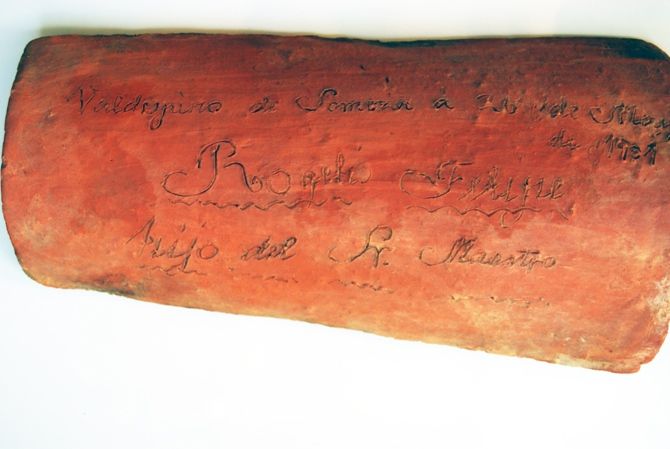 Valdespino de Somoza á de Mayo
de 1901
Rogelio Felipe
Hijo del Sr. Maestro